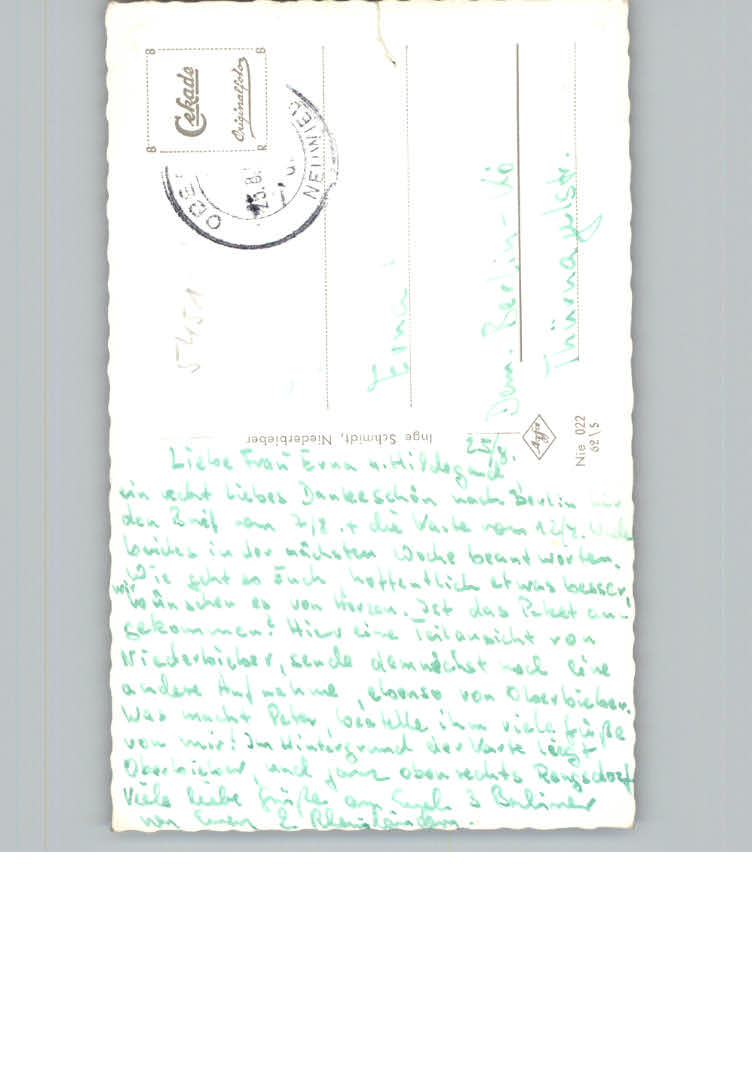 Cekade
Originalfoto
B B B R
OBE
25.8.
NEUWIED
5451
Erna
Dem. Berlin-Kö
Thürnagelstr.
Inge Schmidt, Niederbieber
Agfa
Nie 022
62\5
25/8.
Liebe Frau Erna u. Hildegard
ein recht liebes Dankeschön nach Berlin für
den Brief vom 7/8. + die Karte vom 12/8. Werde
beides in der nächsten Woche beantworten.
Wie geht es Euch, hoffentlich etwas besser,
wir
wünschen es von Herzen. Ist das Paket an-
gekommen? Hier eine Teilansicht von
Niederbieber, sende demnächst noch eine
andere Aufnahme, ebenso von Oberbieber.
Was macht Peter, bestelle ihm viele Grüße
von mir! Im Hintergrund der Karte liegt
Oberbieber, und ganz oben rechts Rengsdorf
Viele liebe Grüße an Euch 3 Berliner
von Euren 2 Rheinländern.